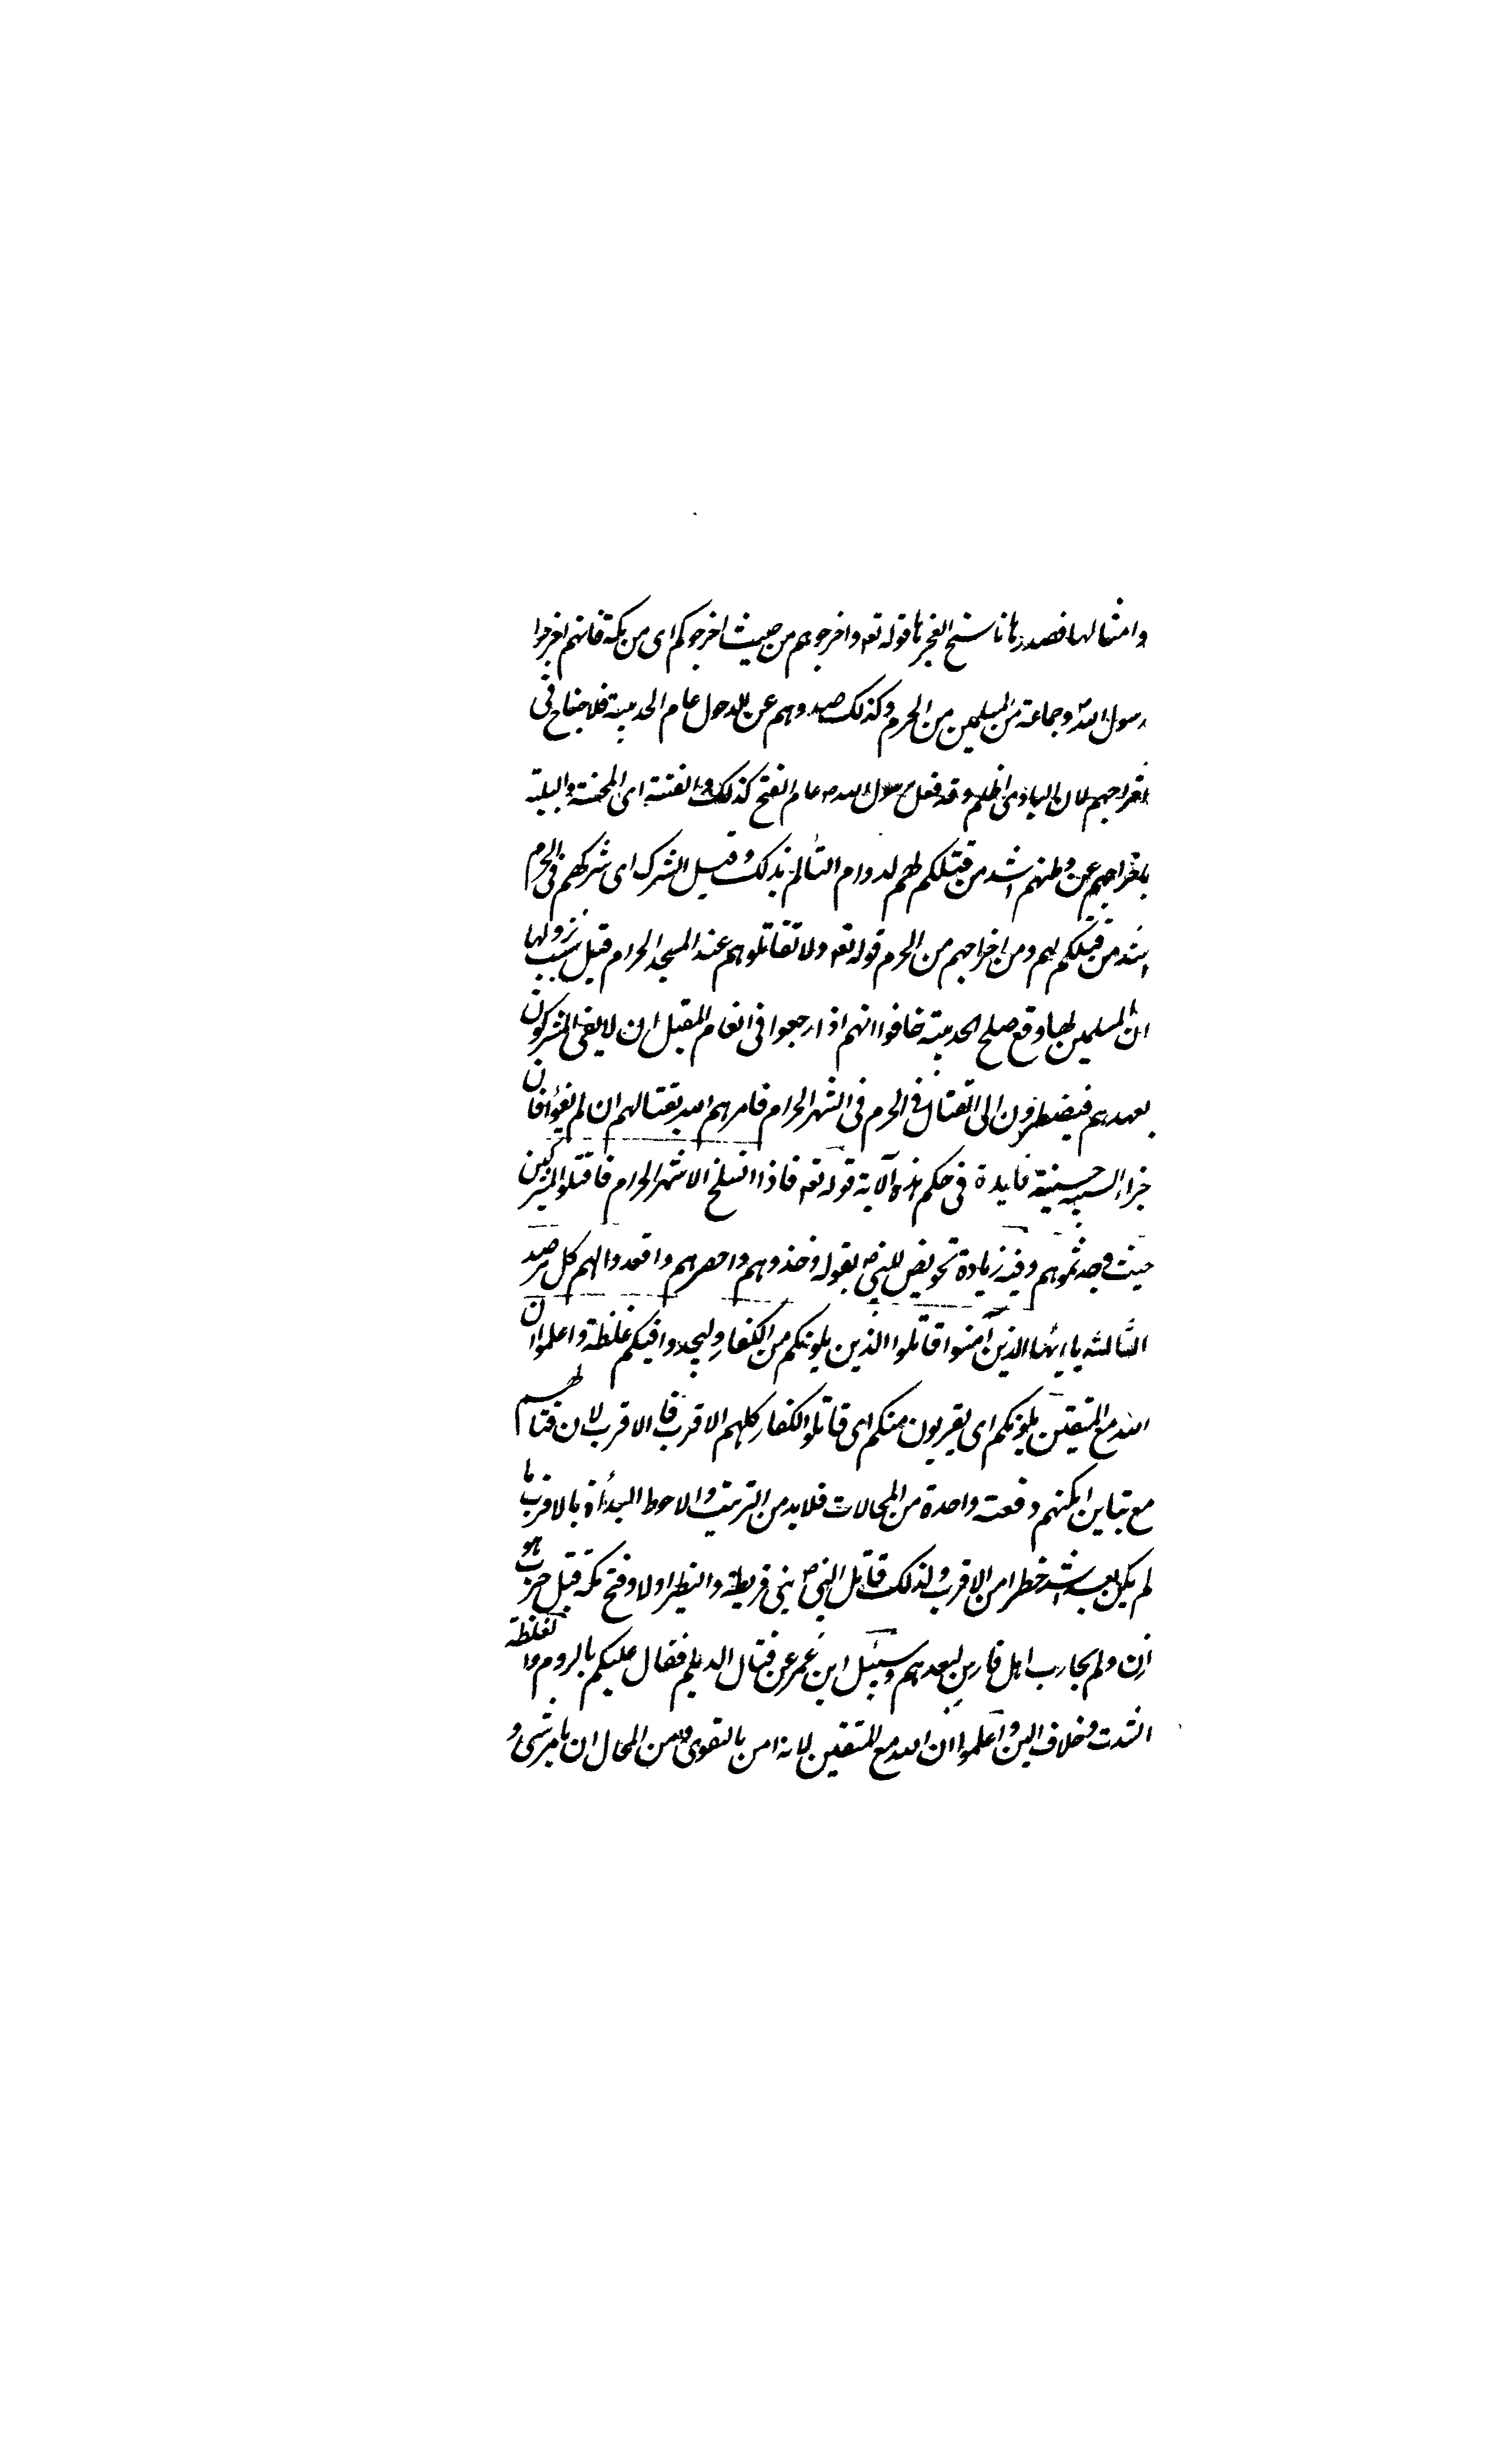 وامثالها فصدرها ناسخ لعجزها قوله تعه واخرجوهم من حيث اخرجوكم اى من مكة فانهم اخرجوا
رسول الله وجماعة من المسلمين من الحرم وكذلك صدوهم عن الدخول عام الحديبية فلا جناح فى
اخراجهم لان البادى اظلم وقد فعل رسول الله ص عام الفتح كذلك والفتنة اى المحنة والبلية
باخراجهم عن وطنهم اشد من قتلكم لهم لدوام التألم بذلك وقيل الشرك اى شركهم فى الحرم
اشد من قتلكم لهم ومن اخراجهم من الحرم قوله تعه ولا تقاتلوهم عند المسجد الحرام قيل سبب نزولها
ان المسلمين لما وقع صلح الحديبية خافوا انهم اذا رجعوا فى العام المقبل ان لا يفى المشركون
بعهدهم فيضطرون الى القتال فى الحرم فى الشهر الحرام فامرهم الله بقتالهم ان لم يفوا فان
جزاء السيئة حسنة فايدة فى حكم هذه الآية قوله تعه فاذا انسلخ الاشهر الحرام فاقتلوا المشركين
حيث وجدتموهم وفيه زيادة تحويض للنبى ص بقوله وخذوهم واحصرهم واقعدوا لهم كل مرصد
الثالثه يا ايها الذين آمنوا قاتلوا الذين يلونكم من الكفار وليجدوا فيكم غلظة واعلموا ان
الله مع المتقين يلونكم اى يقربون منكم اى قاتلوا الكفار كلهم الاقرب فالاقرب لان قتالهم
مع تباين امكنتهم دفعته واحدة من المحالات فلا بد من الترتيب والاحوط البدأة بالاقرب ما
لم يكن الابعد اشد خطرا من الاقرب ولذلك قاتل النبى ص بنى قريظة والنظير اولا وفتح مكة قبل حرب هو
ازن ولم يحارب اهل فارس لبعدهم وسئل ابن عمر عن قتال الديلم فقال عليكم بالروم والغلظة
الشدت وخلاف اللين واعلموا ان الله مع المتقين لانه امر بالتقوى ومن المحال ان يامر بشى و